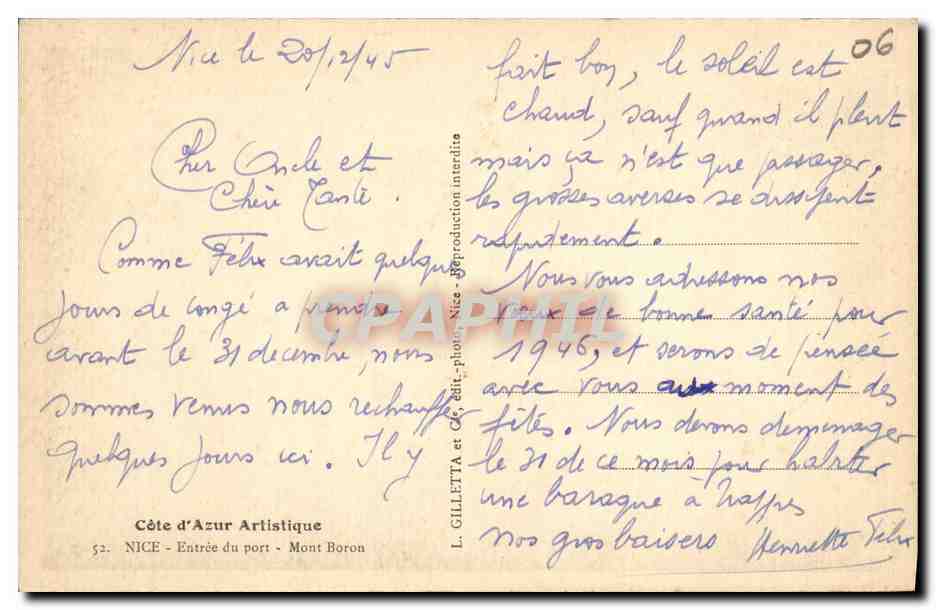 Nice le 20/12/45
Cher Oncle et
Chère Tante.
Comme Félix avait quelques
jours de congé a prendre
avant le 31 decembre, nous
sommes venus nous rechauffer
quelques jours ici. Il y
Côte d'Azur Artistique
52. NICE - Entrée du port - Mont Boron
L. GILLETTA et Cie, édit.-photo, Nice - Reproduction interdite
CPAPHIL
06
fait bon, le soleil est
chaud, sauf quand il pleut
mais ça n'est que passager,
les grosses averses se dissipent
rapidement.
Nous vous adressons nos
voeux de bonne santé pour
1946, et serons de pensée
avec vous aux moment des
fêtes. Nous devons demenager
le 31 de ce mois pour habiter
une baraque à
nos gros baisers Henriette Félix